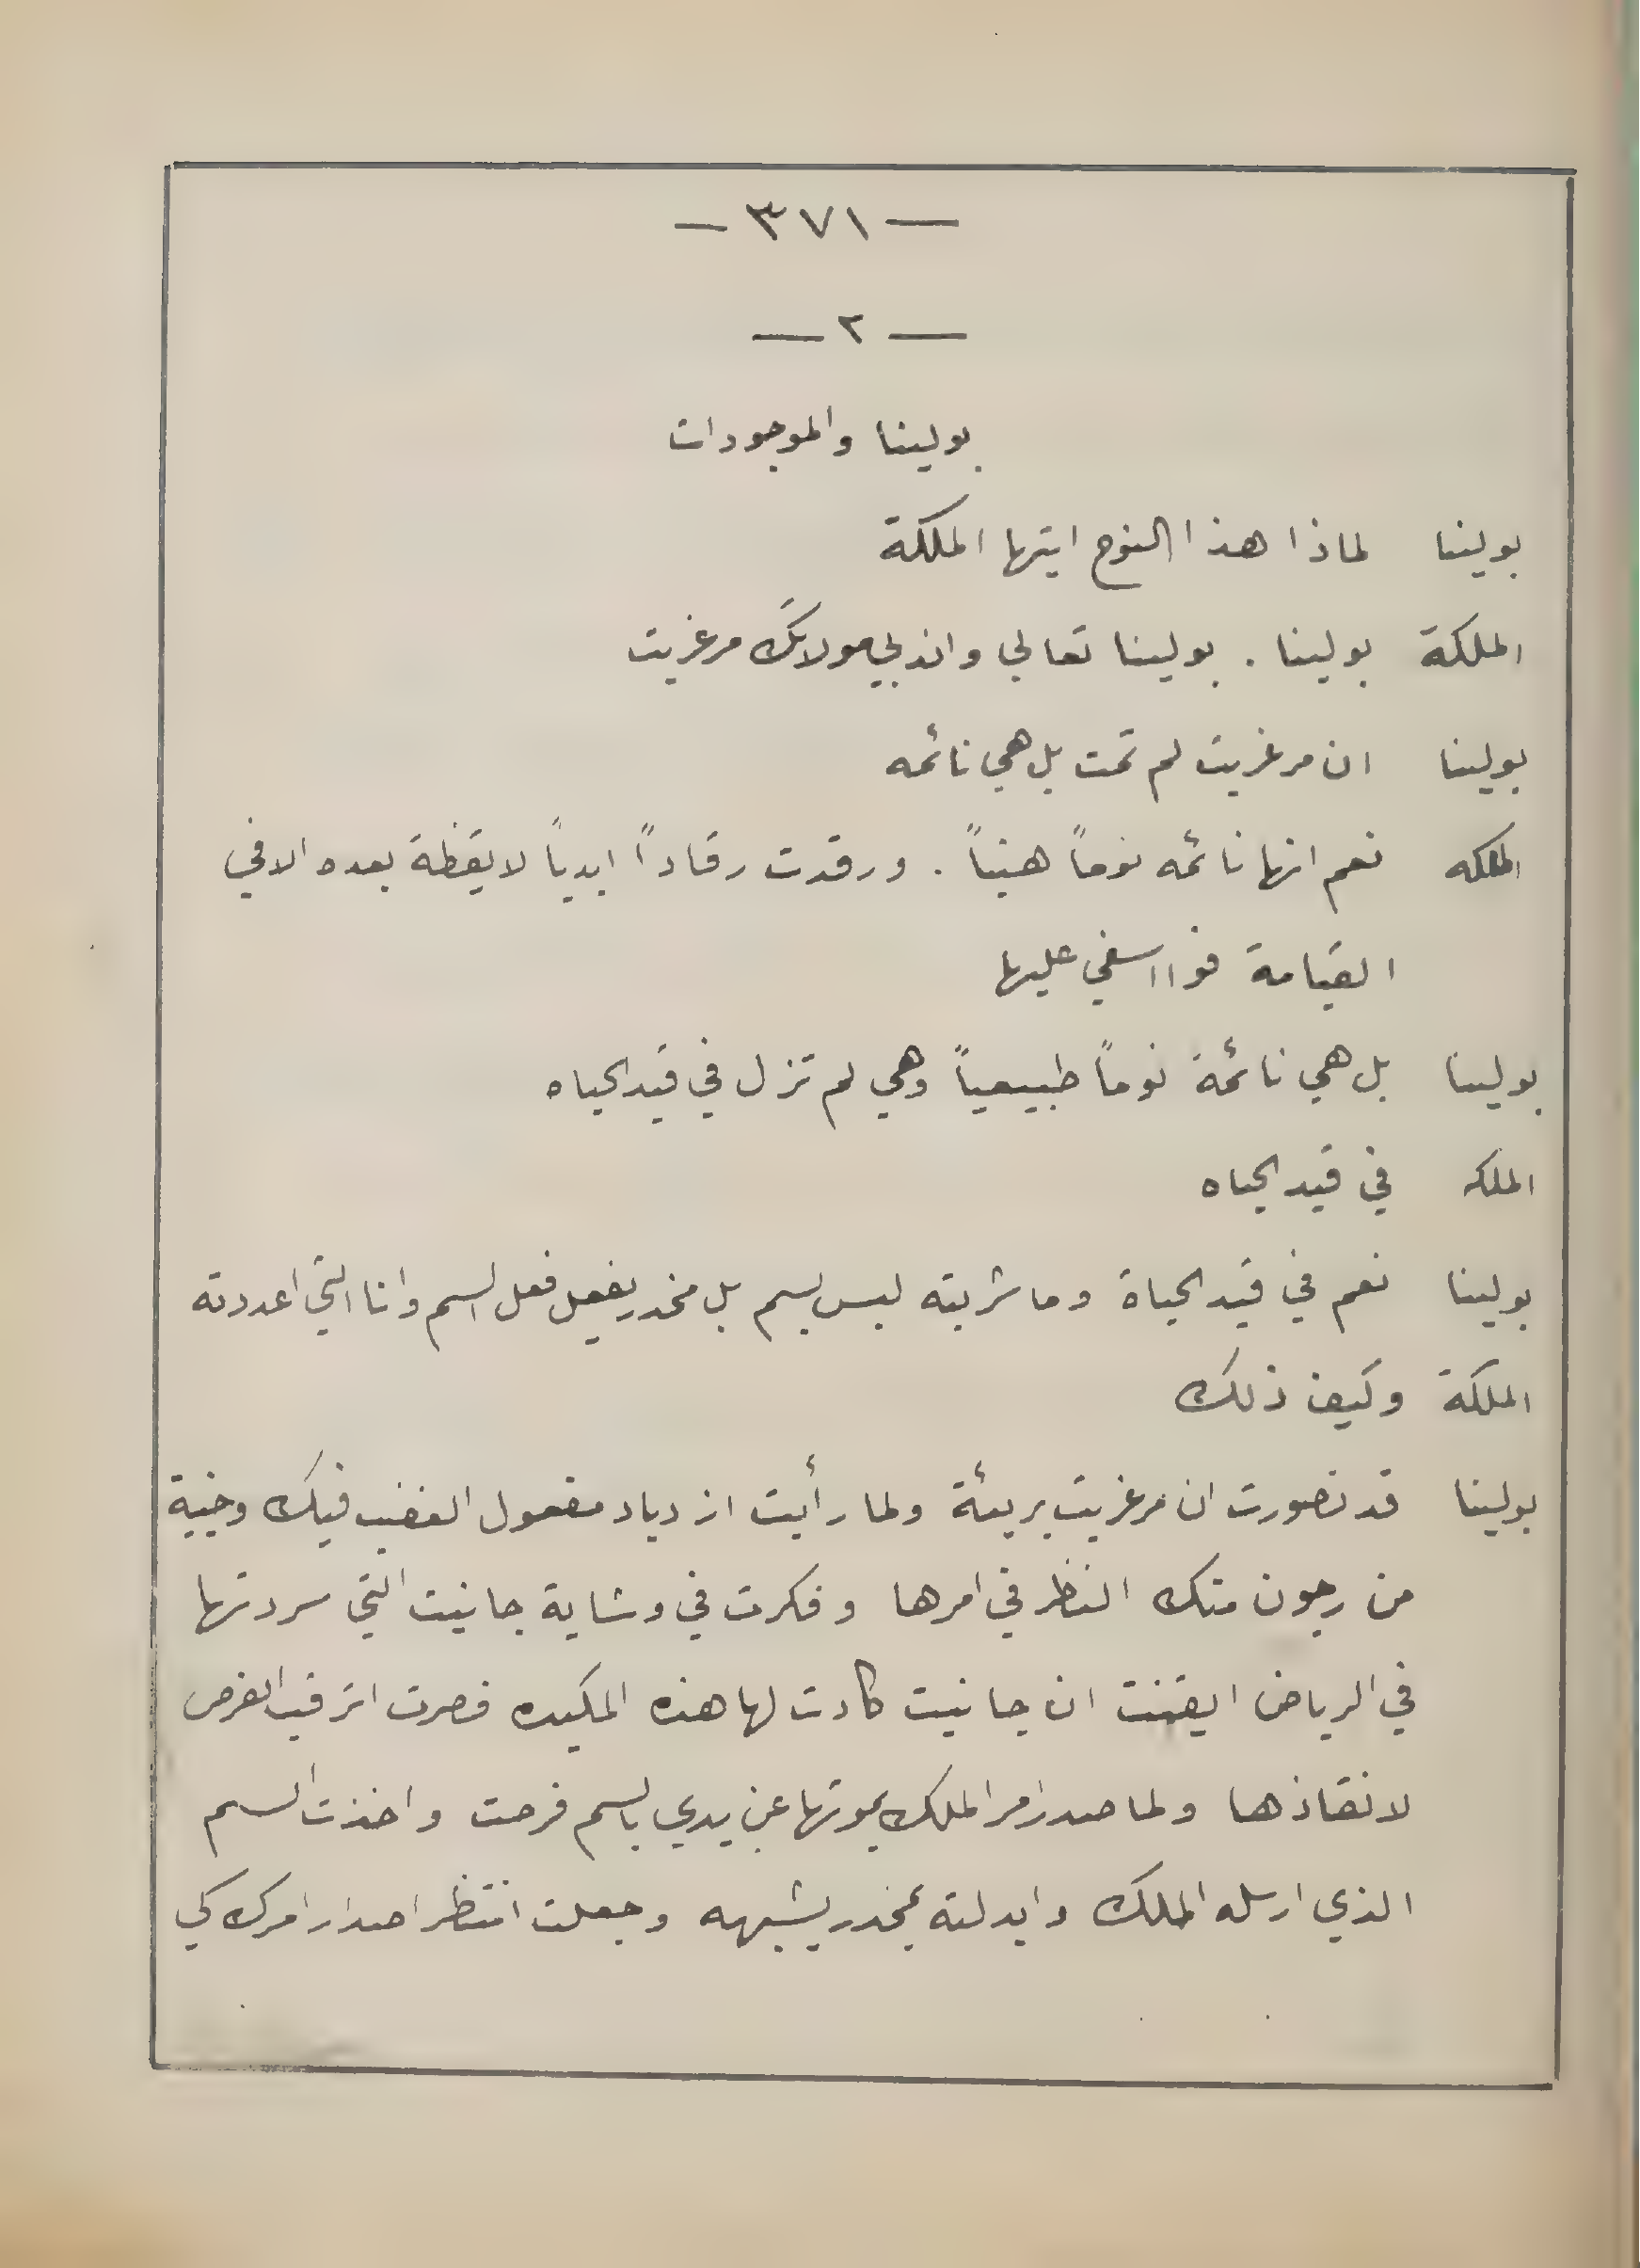 — ٣٧١ —
— ٢ —
بولينا والموجودات
بولينا لماذا هذا النوح ايتها الملكة
الملكة بولينا . بولينا تعالي واندبي مولاتك مرغريت
بولينا ان مرغريت لم تمت بل هي نائمه
الملكه نعم انها نائمه نوماً هنياً . ورقدت رقاداً ابدياً لا يقظة بعده الا في
القيامة فوا اسفي عليها
بولينا بل هي نائمة نوماً طبيعياً وهي لم تزل في قيد الحياه
الملكه في قيد الحياه
بولينا نعم في قيد الحياة وما شربته ليس بسم بل مخدر يفعل فعل السم وانا التي اعددته
الملكة وكيف ذلك
بولينا قد تصورت ان مرغريت بريئة ولما رأيت ازدياد مفعول الغضب فيك وخيبة
من رجون منك النظر في امرها وفكرت في وشاية جانيت التي سردتها
في الرياض ايقنت ان جانيت كادت لها هذه المكيده فصرت اترقب الفرص
لانقاذها ولما صدر امر الملك بموتها عن يدي بالسم فرحت واخذت السم
الذي ارسله الملك وابدلته بمخدر يشبهه وجعلت انتظر اصدار امرك كي